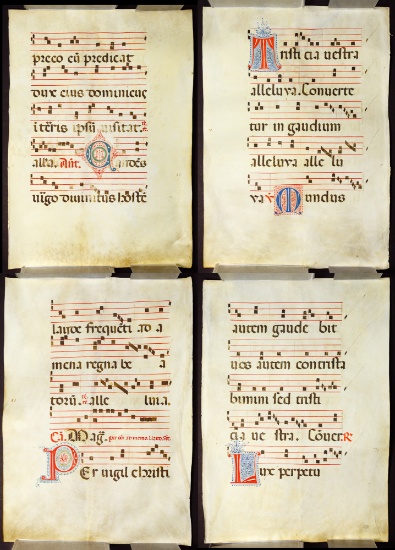 preco cū predicat
dux eius dominicuc
i teris ipsū uisitat.
alla. Añt. Cādēs
uirgo diuinitus hoste
Tristi cia uestra
alleluya. Conuerte
tur in gaudium
alleluya alle lu
ya Mundus
laude frequēti ad a
mena regna be a
torū. alle luia.
Ad Mag.
Per uigil christi
autem gaude bit
uos autem contrista
bimini sed tristi
cia ue stra. Cōuer. Re
Lux perpetu